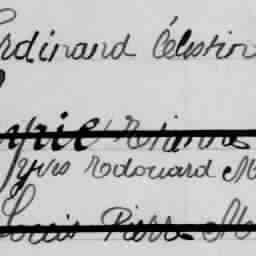 rdinand Célestin
Etienne
Yves Edouard M
Louis Pierre M